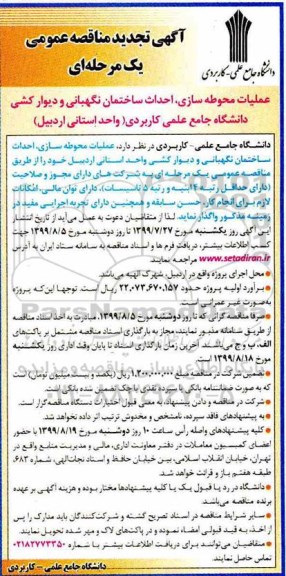 آگهی تجدید مناقصه عمومی
یک مرحله‌ای
دانشگاه جامع علمی - کاربردی
عملیات محوطه سازی، احداث ساختمان نگهبانی و دیوار کشی
دانشگاه جامع علمی کاربردی( واحد استانی اردبیل)
دانشگاه جامع علمی - کاربردی در نظر دارد، عملیات محوطه سازی، احداث
ساختمان نگهبانی و دیوار کشی واحد استانی اردبیل خود را از طریق
مناقصه عمومی یک مرحله ای به شرکت های دارای مجوز و صلاحیت
(دارای حداقل رتبه ۴ ابنیه و رتبه ۵ تاسیسات)، دارای توان مالی، امکانات
لازم برای انجام کار، حسن سابقه و همچنین دارای تجربه اجرایی مفید در
زمینه مذکور واگذار نماید. لذا از متقاضیان دعوت به عمل می‌آید از تاریخ انتشار
این آگهی روز یکشنبه مورخ ۱۳۹۹/۷/۲۷ تا روز دوشنبه مورخ ۱۳۹۹/۸/۵ جهت
کسب اطلاعات بیشتر، دریافت فرم ها و اسناد مناقصه به سامانه ستاد ایران به آدرس
www.setadiran.ir مراجعه نمایند.
محل اجرای پروژه واقع در اردبیل، شهرک الهیه می‌باشد.
برآورد اولیه پروژه حدود ۲۲,۰۷۳,۶۷۰,۱۵۷ ریال است. توجها این‌که پروژه
به‌صورت غیر عمرانی است.
صرفا مناقصه گرانی که تا روز دوشنبه مورخ ۱۳۹۹/۸/۵، مبادرت به اخذ اسناد مناقصه
از طریق سامانه مذبور نمایند، مجاز به بارگذاری اسناد مناقصه مشتمل بر پاکت‌های
الف، ب و ج می‌باشند. آخرین زمان بارگذاری اسناد تا پایان وقت اداری روز یکشنبه
مورخ ۱۳۹۹/۸/۱۸ است.
که به صورت ضمانتنامه بانکی یا سپرده نقدی یا چک تضمین شده بانکی است.
شرکت در مناقصه و دادن پیشنهاد، به منزله‌ی قبول اختیارات دستگاه مناقصه‌گزار است.
به پیشنهادهای فاقد سپرده، نامشخص و مخدوش ترتیب اثر داده نخواهد شد.
کلیه پیشنهادهای واصله رأس ساعت ۱۰ روز دوشنبه مورخ ۱۳۹۹/۸/۱۹ با حضور
اعضای کمیسیون معاملات در دفتر معاونت اداری، مالی و مدیریت منابع واقع در
تهران، خیابان انقلاب اسلامی، بین خیابان حافظ و استاد نجات‌الهی، شماره ۶۸۳،
طبقه هفتم باز و قرائت خواهد شد.
دانشگاه در رد یا قبول یک یا کلیه پیشنهادها مختار بوده و هزینه آگهی بر عهده
برنده مناقصه می‌باشد.
سایر شرایط مناقصه در اسناد تصریح گشته و شرکت‌کنندگان باید مدارک را پس
از اخذ، به قید قبولی امضاء نموده و در پاکت‌های لاک و مهر شده تحویل نمایند.
متقاضیان می‌توانند برای دریافت اطلاعات بیشتر با شماره ۰۲۱۸۲۷۷۳۳۵۰
تماس حاصل نمایند.
دانشگاه جامع علمی - کاربردی